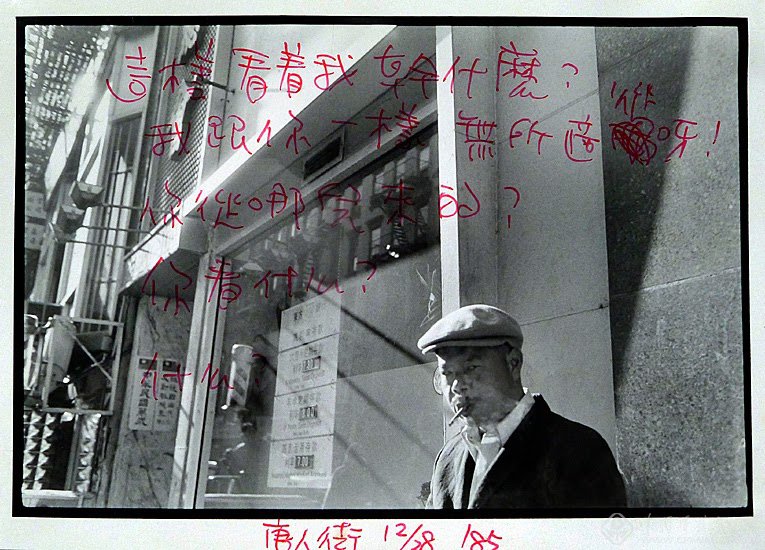 這樣看着我幹什麽?
我跟你一樣 無所適從呀!
你從哪兒來的?
你看什么?
什么?
唐人街 12/28 '85